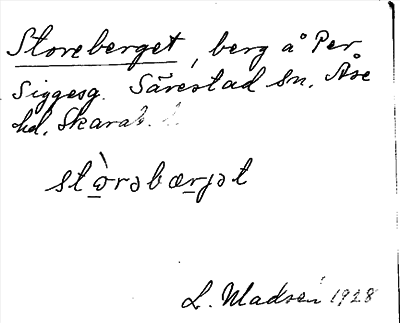 Storeberget, berg å Per
Siggesg. Särestad sn. Åse
hd. Skarab. l.
stòrəbærjət
L. Madsén 1928